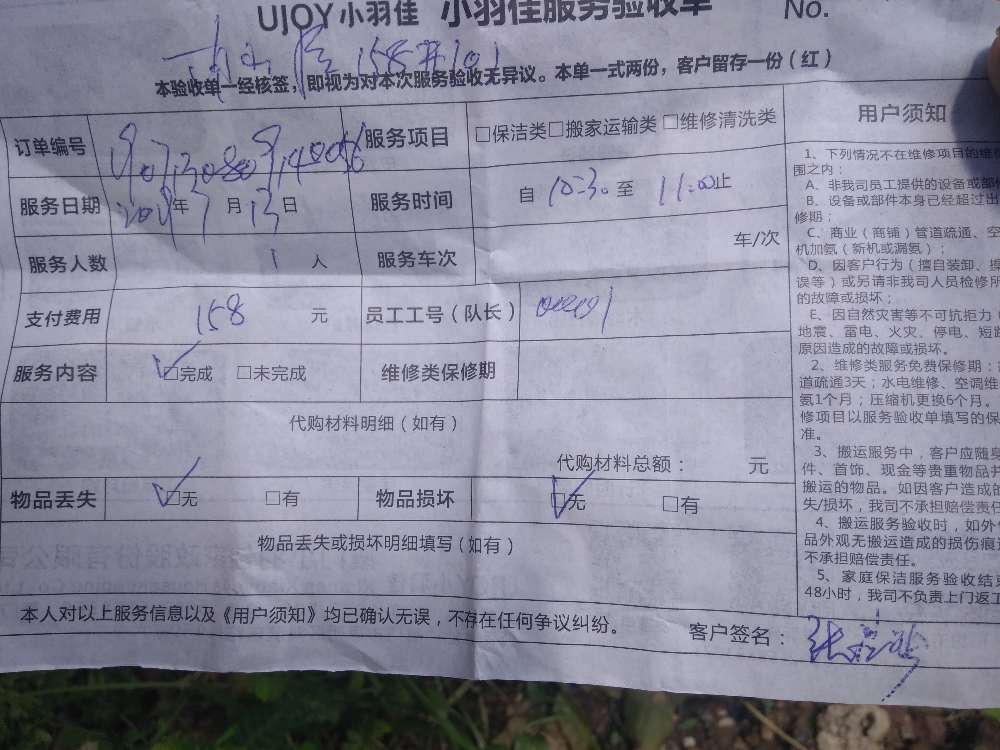 UJOY小羽佳 小羽佳服务验收单 No.
158弄101
本验收单一经核签，即视为对本次服务验收无异议。本单一式两份，客户留存一份（红）
订单编号
服务项目 □保洁类□搬家运输类□维修清洗类
服务日期 年 7 月 13 日
服务时间 自 10:30 至 11:00 止
服务人数 1 人 服务车次 车/次
支付费用 158 元 员工工号（队长）
服务内容 □完成 □未完成 维修类保修期
代购材料明细（如有）
代购材料总额： 元
物品丢失 □无 □有 物品损坏 □无 □有
物品丢失或损坏明细填写（如有）
本人对以上服务信息以及《用户须知》均已确认无误，不存在任何争议纠纷。
客户签名：
用户须知
1、下列情况不在维修项目的维
围之内：
A、非我司员工提供的设备或部
B、设备或部件本身已经超过出
修期；
C、商业（商铺）管道疏通、空
机加氨（新机或漏氨）；
D、因客户行为（擅自装卸、操
误等）或另请非我司人员检修所
的故障或损坏；
E、因自然灾害等不可抗拒力（
地震、雷电、火灾、停电、短路
原因造成的故障或损坏。
2、维修类服务免费保修期：
道疏通3天；水电维修、空调维
氨1个月；压缩机更换6个月。
修项目以服务验收单填写的保
准。
3、搬运服务中，客户应随身
件、首饰、现金等贵重物品并
搬运的物品。如因客户造成的
失/损坏，我司不承担赔偿责任
4、搬运服务验收时，如外包
品外观无搬运造成的损伤痕迹
不承担赔偿责任。
5、家庭保洁服务验收结束
48小时，我司不负责上门返工